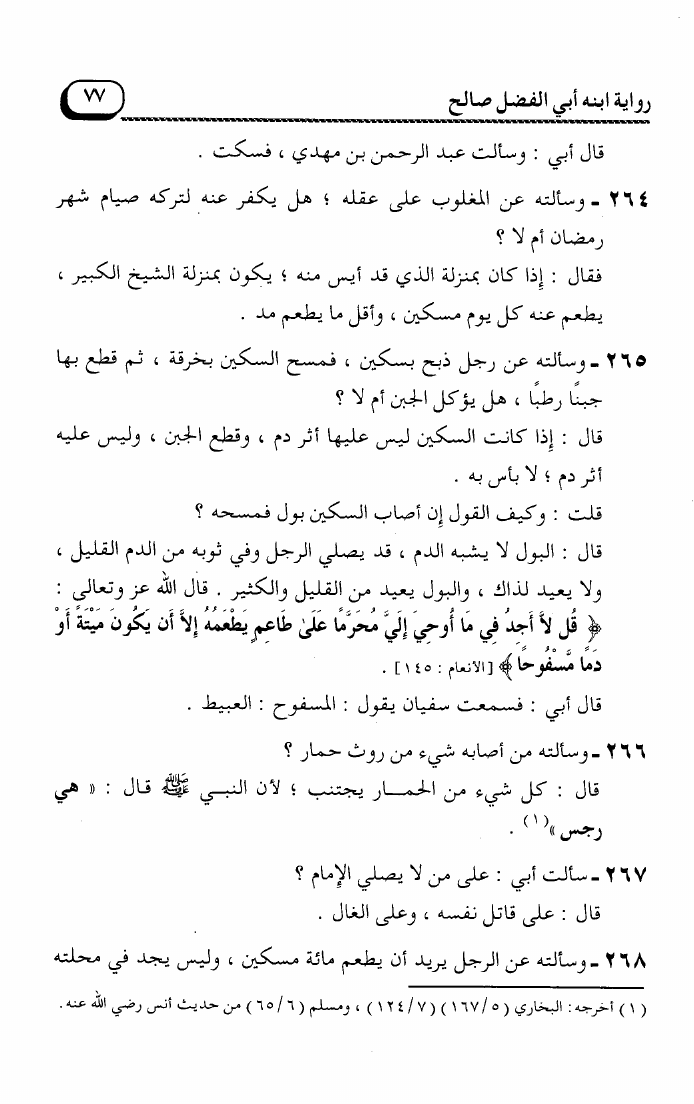 رواية ابنه أبي الفضل صالح
٧٧
قال أبي : وسألت عبد الرحمن بن مهدي ، فسكت .
٢٦٤ ـ وسألته عن المغلوب على عقله ؛ هل يكفر عنه لتركه صيام شهر
رمضان أم لا ؟
فقال : إذا كان بمنزلة الذي قد أيس منه ؛ يكون بمنزلة الشيخ الكبير ،
يطعم عنه كل يوم مسكين ، وأقل ما يطعم مد .
٢٦٥ ـ وسألته عن رجل ذبح بسكين ، فمسح السكين بخرقة ، ثم قطع بها
جبنًا رطبًا ، هل يؤكل الجبن أم لا ؟
قال : إذا كانت السكين ليس عليها أثر دم ، وقطع الجبن ، وليس عليه
أثر دم ؛ لا بأس به .
قلت : وكيف القول إن أصاب السكين بول فمسحه ؟
قال : البول لا يشبه الدم ، قد يصلي الرجل وفي ثوبه من الدم القليل ،
ولا يعيد لذاك ، والبول يعيد من القليل والكثير . قال الله عز وتعالى :
﴿ قُل لاَّ أَجِدُ فِي مَا أُوحِيَ إِلَيَّ مُحَرَّمًا عَلَىٰ طَاعِمٍ يَطْعَمُهُ إِلاَّ أَن يَكُونَ مَيْتَةً أَوْ
دَمًا مَّسْفُوحًا ﴾ [الأنعام : ١٤٥] .
قال أبي : فسمعت سفيان يقول : المسفوح : العبيط .
٢٦٦ ـ وسألته من أصابه شيء من روث حمار ؟
قال : كل شيء من الحمــار يجتنب ؛ لأن النبـي ﷺ قـال : « هي
رجس »(١) .
٢٦٧ ـ سألت أبي : على من لا يصلي الإمام ؟
قال : على قاتل نفسه ، وعلى الغال .
٢٦٨ ـ وسألته عن الرجل يريد أن يطعم مائة مسكين ، وليس يجد في محلته
(١) أخرجه : البخاري (٥/١٦٧) (٧/١٢٤) ، ومسلم (٦/٦٥) من حديث أنس رضي الله عنه .